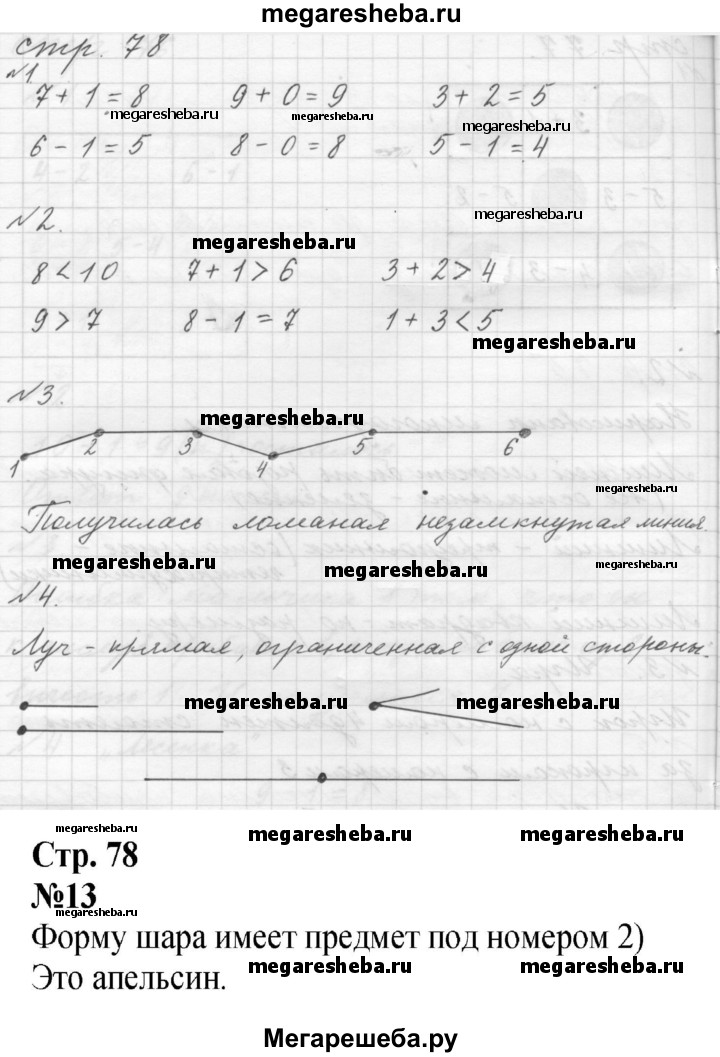 megaresheba.ru
стр. 78
№1.
7 + 1 = 8 9 + 0 = 9 3 + 2 = 5
megaresheba.ru megaresheba.ru megaresheba.ru
6 - 1 = 5 8 - 0 = 8 5 - 1 = 4
megaresheba.ru
№2.
megaresheba.ru
8 < 10 7 + 1 > 6 3 + 2 > 4
9 > 7 8 - 1 = 7 1 + 3 < 5
megaresheba.ru
№3.
megaresheba.ru
1 2 3 4 5 6
megaresheba.ru
Получилась ломаная незамкнутая линия.
megaresheba.ru megaresheba.ru megaresheba.ru
№4.
Луч - прямая, ограниченная с одной стороны.
megaresheba.ru megaresheba.ru
megaresheba.ru megaresheba.ru megaresheba.ru
Стр. 78
№13
megaresheba.ru
Форму шара имеет предмет под номером 2)
Это апельсин.
megaresheba.ru megaresheba.ru
Мегарешеба.ру